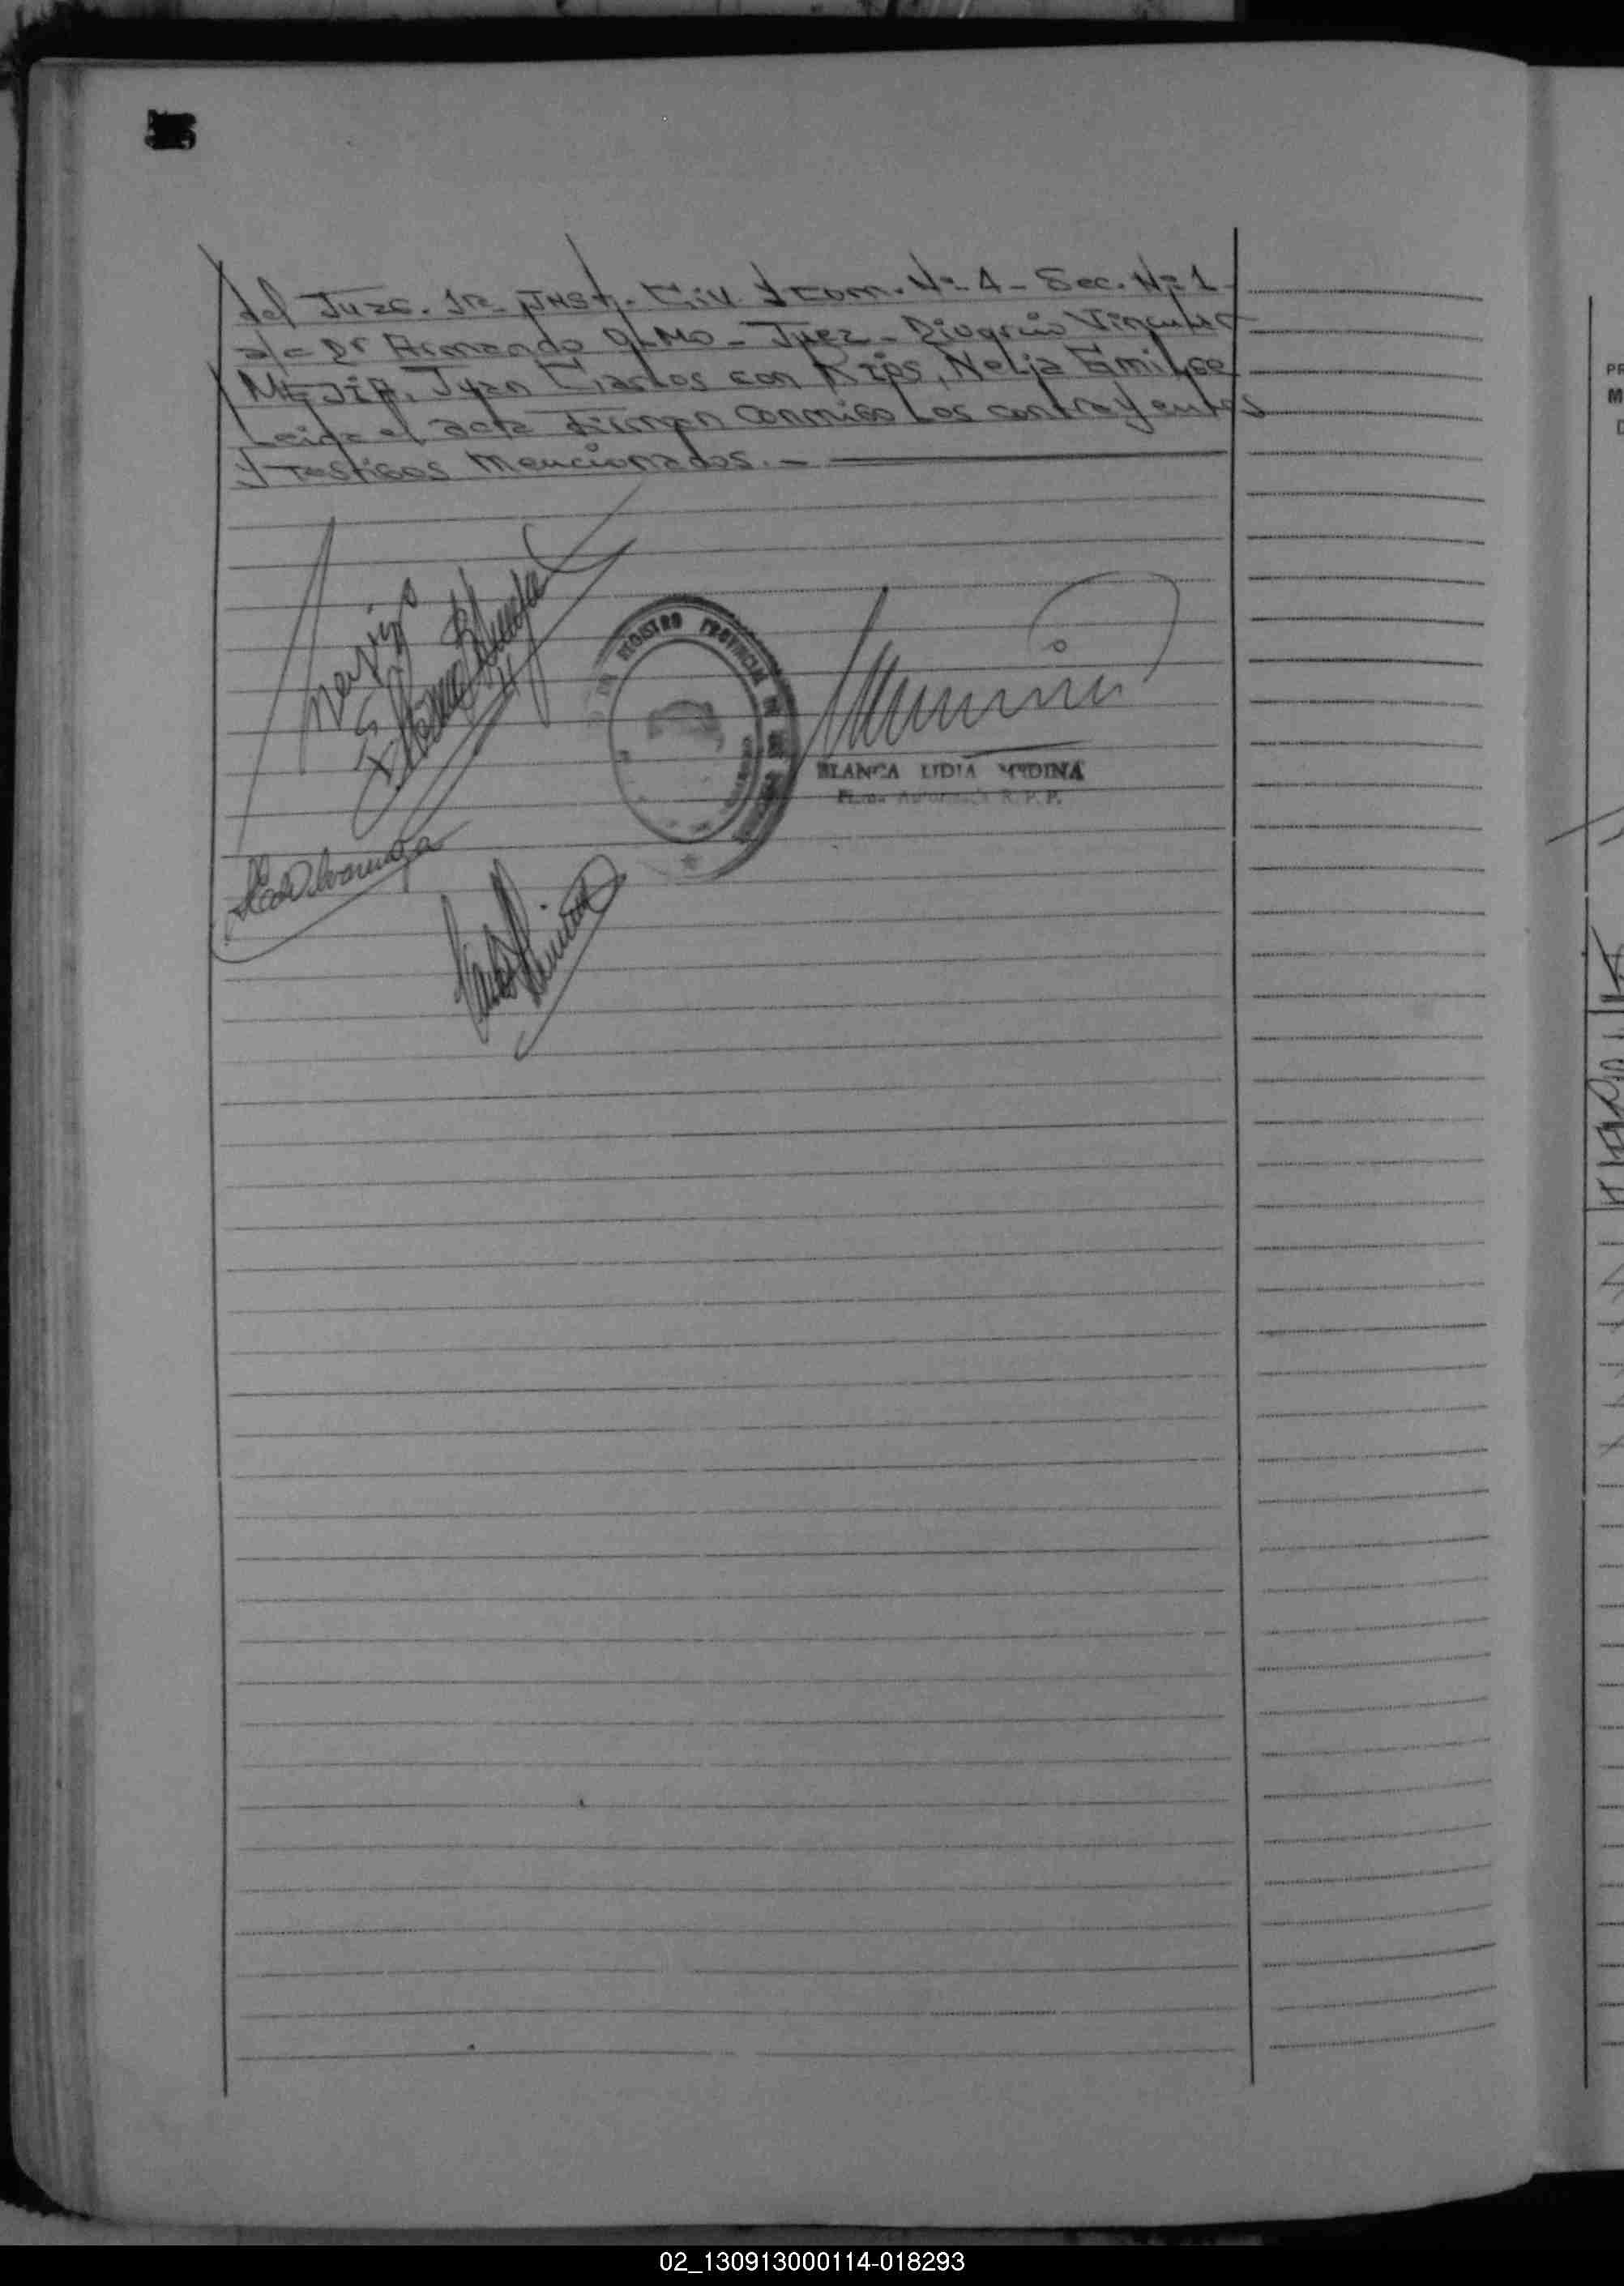 del Juzg. 1ra Inst. Civ. y Com. Nº 4 - Sec. Nº 1
a/c Dr Armando OLMO - Juez - Divorcio Vincular
MEJIA, Juan Carlos con Rios, Nelja Emilse
Leida el acta Firman conmigo Los contrayentes
y Testigos mencionados. -
REGISTRO PROVINCIAL
BLANCA LIDIA MEDINA
Firma Autorizada R. P. P.
PR
M
02_130913000114-018293